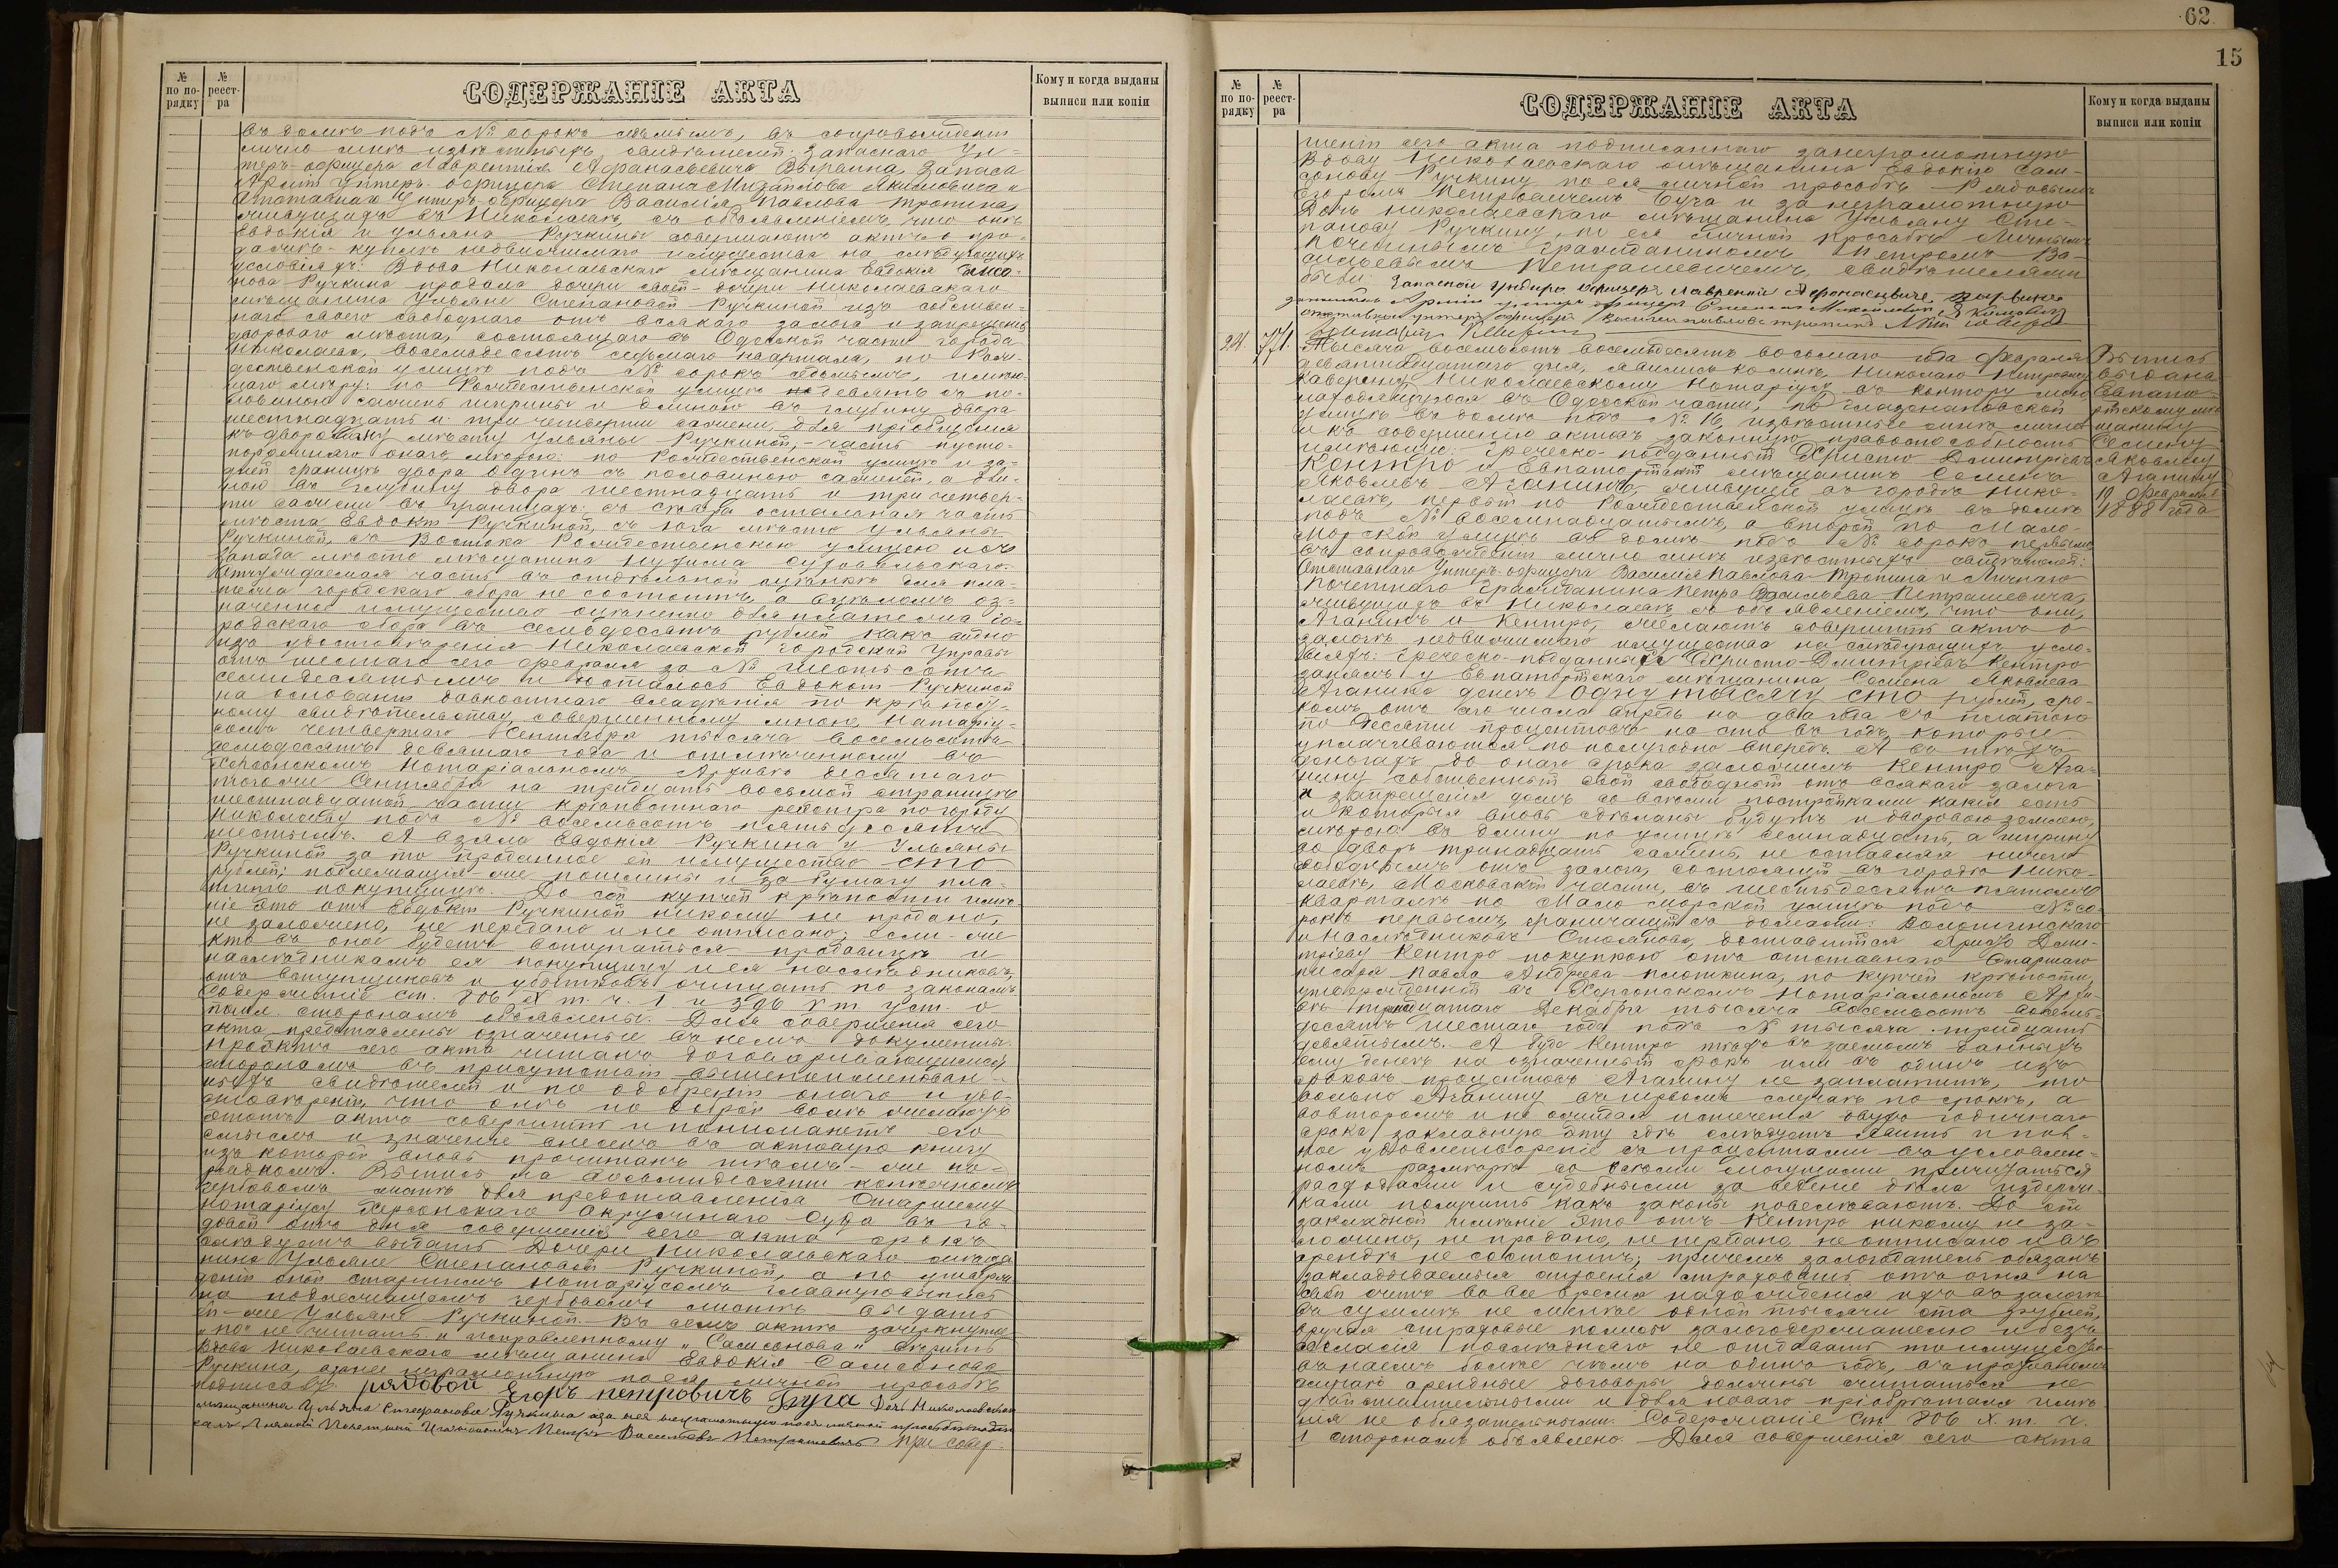 62
15
№ по по-рядку
№ реест-ра
СОДЕРЖАНІЕ АКТА
Кому и когда выданы выписи или копіи
въ домѣ подъ № сорокъ седьмымъ, въ сопровожденіи
лично мнѣ извѣстныхъ свидѣтелей: Запаснаго Ун-
теръ-офицера Лаврентія Афанасьевича запаса
Арміи Унтеръ-офицера Степана Михайлова Якимовича и
Отставнаго Унтеръ-офицера Василія Павлова Тропина,
живущихъ въ Николаевѣ, съ объявленіемъ, что онѣ
Евдокія и Ульяна Ручкины совершаютъ актъ о про-
дажѣ-куплѣ недвижимаго имущества на слѣдующихъ
условіяхъ: Вдова Николаевскаго мѣщанина Евдокія Самсо-
нова Ручкина продала дочери своей-дочери Николаевскаго
мѣщанина Ульянѣ Степановой Ручкиной изъ собствен-
наго своего свободнаго отъ всякаго залога и запрещенія
двороваго мѣста, состоящаго въ Одесской части города
Николаева, восемьдесятъ седьмаго квартала, по Рож-
дественской улицѣ подъ № сорокъ седьмымъ, имѣю-
щаго мѣру: по Рождественской улицѣ девять съ по-
ловиною сажень ширины и длиною въ глубину двора
шестнадцать и три четверти сажени, для пріобщенія
къ дворовому мѣсту Ульяны Ручкиной,- часть пусто-
порожняго онаго мѣрою: по Рождественской улицѣ и за-
дней границѣ двора одинъ съ половиною саженей, а дли-
ною въ глубину двора шестнадцать и три четвер-
ти сажени въ границахъ: съ Сѣвера остальная часть
мѣста Евдокіи Ручкиной, съ Юга мѣсто Ульяны
Ручкиной, съ Востока Рождественскою улицею и съ
Запада мѣсто мѣщанина
Отчуждаемая часть въ отдѣльной оцѣнкѣ для пла-
тежа городскаго сбора не состоитъ, а въ цѣломъ оз-
наченное имущество оцѣнено для платежа го-
родскаго сбора въ семьдесятъ рублей какъ видно
изъ удостовѣренія Николаевской Городской Управы
отъ шестаго сего февраля за № шестьсотъ
семидесятымъ и досталось Евдокіи Ручкиной
на основаніи давностнаго владѣнія по крѣпост-
ному свидѣтельству, совершенному мною, Нотаріу-
сомъ четвертаго Сентября тысяча восемьсотъ
семьдесятъ девятаго года и отмѣченному въ
Херсонскомъ Нотаріальномъ Архивѣ десятаго
тогоже Сентября на тридцать восьмой страницѣ
шестнадцатой части крѣпостнаго реестра по городу
Николаеву подъ № восемьсотъ пятьдесятъ
шестымъ. А взяла Евдокія Ручкина у Ульяны
Ручкиной за то проданное ей имущество сто
рублей; подлежащія-же пошлины и за бумагу пла-
титъ покупщица. До сей купчей крѣпости имѣ-
ніе это отъ Евдокіи Ручкиной никому не продано,
не заложено, не передано и не отписано; если-же
кто въ оное будетъ вступаться продавцу и
наслѣдникамъ ея покупщицу и ея наслѣдниковъ,
отъ вступщиковъ и убытковъ очищать по законамъ
Содержаніе ст. 806 X т. ч. 1 и
пошл. сторонамъ объявлены. Для совершенія сего
акта представлены означенные въ немъ документы.
Проектъ сего акта читанъ договаривающимся
сторонамъ въ присутствіи вышепоименован-
ныхъ свидѣтелей и по одобреніи онаго и удо-
стовѣреніи, что онѣ по доброй волѣ желаютъ
этотъ актъ совершить и понимаютъ его
смыслъ и значеніе внесенъ въ актовую книгу
изъ которой вновь прочитанъ тѣмъ-же по-
рядкомъ. Выпись на восьмидесяти копеечномъ
гербовомъ листѣ для представленія Старшему
Нотаріусу Херсонскаго Окружнаго Суда въ го-
довой отъ дня совершенія сего акта срокъ
слѣдуетъ выдать Дочери Николаевскаго мѣща-
нина Ульянѣ Степановой Ручкиной, а по утвер-
жденіи оной старшимъ нотаріусомъ главную выпись
на подлежащемъ гербовомъ листѣ выдать
ей-же Ульянѣ Ручкиной. Въ семъ актѣ зачеркнутое
„по" не читать и исправленному „Самсонова" вѣрить
Вдова Николаевскаго мѣщанина Евдокія Самсонова
Ручкина, а за нее неграмотную по ея личной просьбѣ
подписалъ рядовой Егоръ Петровичъ Буга Дочь Николаевскаго
мѣщанина Ульяна Стефанова Ручкина а за нея неграмотную по ея личной просьбѣ подпи-
салъ Личный Почетный Гражданинъ Петръ Васильевъ Петрашевичъ При совер-
№ по по-рядку
№ реест-ра
СОДЕРЖАНІЕ АКТА
Кому и когда выданы выписи или копіи
шеніи сего акта подписаннаго за неграмотную
Вдову Николаевскаго мѣщанина Евдокію Сам-
сонову Ручкину по ея личной просьбѣ Рядовымъ
Егоромъ Петровичемъ Буга и за неграмотную
Дочь николаевскаго мѣщанина Ульяну Сте-
панову Ручкину, по ея личной просьбѣ Личнымъ
почетнымъ гражданиномъ Петромъ Ва-
сильевымъ Петрашевичемъ, свидѣтелями
были: Запасной Унтеръ офицеръ Лаврентій Афонасьевичъ
запаса Арміи унтеръ офицеръ Степанъ Михайловъ Якимовичъ
отставной унтеръ офицеръ Василій Павловъ Тропинъ
Нотаріусъ
24.
Тысяча восемьсотъ восемьдесятъ восьмаго года Февраля
девятнадцатаго дня, явились ко мнѣ, Николаю Петровичу
Каверину Николаевскому Нотаріусу въ контору мою
находящуюся въ Одесской части, по Глазенаповской
улицѣ въ домѣ подъ № 16, извѣстные мнѣ лично
и къ совершенію актовъ законную правоспособность
имѣющіе: Греческо-подданный Христо Дмитріевъ
Кентро и Евпаторійскій мѣщанинъ Семенъ
Яковлевъ Аганинъ, живущіе въ городѣ Нико-
лаевѣ, первый по Рождественской улицѣ въ домѣ
подъ № восемнадцатымъ, а второй по Мало-
Морской улицѣ въ домѣ подъ № сорокъ первымъ,
въ сопровожденіи лично мнѣ извѣстныхъ свидѣтелей:
Отставнаго Унтеръ-офицера Василія Павлова Тропина и Личнаго
Почетнаго Гражданина Петра Васильева Петрашевича,
живущихъ въ Николаевѣ, съ объявленіемъ, что они,
Аганинъ и Кентро, желаютъ совершить актъ о
залогѣ недвижимаго имущества на слѣдующихъ усло-
віяхъ: Греческо-подданный Христо Дмитріевъ Кентро
занялъ у Евпаторійскаго мѣщанина Семена Яковлева
Аганина денегъ одну тысячу сто рублей, сро-
комъ отъ сего числа впредь на два года съ платою
по десяти процентовъ на сто въ годъ, которые
уплачиваются по полугодно впередъ. А въ тѣхъ
деньгахъ до онаго срока заложилъ Кентро Ага-
нину собственный свой свободный отъ всякаго залога
и запрещенія домъ со всѣми постройками какія есть
и которыя вновь сдѣланы будутъ и дворовою землею,
мѣрою: въ длину по улицѣ семнадцать, а ширину
во дворъ тринадцать сажень, не оставляя ничего
свободнымъ отъ залога, состоящій въ городѣ Нико-
лаевѣ, Московской части, въ шестьдесятъ пятомъ
кварталѣ по Мало Морской улицѣ подъ № со-
рокъ первымъ, граничащій съ домами:
и Наслѣдниковъ доставшійся Христо Дми-
тріеву Кентро покупкою отъ отставнаго Старшаго
писаря Павла Андреева Плошкина, по купчей крѣпости,
утвержденной въ Херсонскомъ Нотаріальномъ Архи-
вѣ тринадцатаго Декабря тысяча восемьсотъ восемь-
десятъ шестаго года подъ № тысяча тридцать
девятымъ. А буде Кентро тѣхъ въ заемъ данныхъ
ему денегъ на означенный срокъ или въ одинъ изъ
сроковъ процентовъ Аганину не заплатитъ, то
вольно Аганину въ первомъ случаѣ по срокѣ, а
во второмъ и не ожидая истеченія двухъ годичнаго
срока закладную эту гдѣ слѣдуетъ явить и пол-
ное удовлетвореніе съ процентами въ условлен-
номъ размѣрѣ со всѣми могущими причитаться
расходами и судебными за веденіе дѣла издерж-
ками получить какъ законы повелѣваютъ. До сей
закладной имѣніе это отъ Кентро никому не за-
ложено, не продано, не передано, не отписано и въ
арендѣ не состоитъ; причемъ залогодатель обязанъ
закладываемыя строенія страховать отъ огня на
свой счетъ во все время нахожденія ихъ въ залогѣ
въ суммѣ не менѣе одной тысячи ста рублей,
вручая страховые полисы залогодержателю и безъ
согласія послѣдняго не отдавать то имущество
въ наемъ болѣе чѣмъ на одинъ годъ, въ противномъ
случаѣ арендные договоры должны считаться не
дѣйствительными и для новаго пріобрѣтателя имѣ-
нія не обязательными. Содержаніе Ст. 806 X т. ч.
1 сторонамъ объявлено. Для совершенія сего акта
Выпись
выдана
Евпато-
рійскому мѣ-
щанину
Семену
Яковлеву
Аганину
19 февраля
1888 года